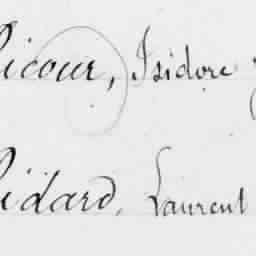 icour, Isidore
idard, Laurent